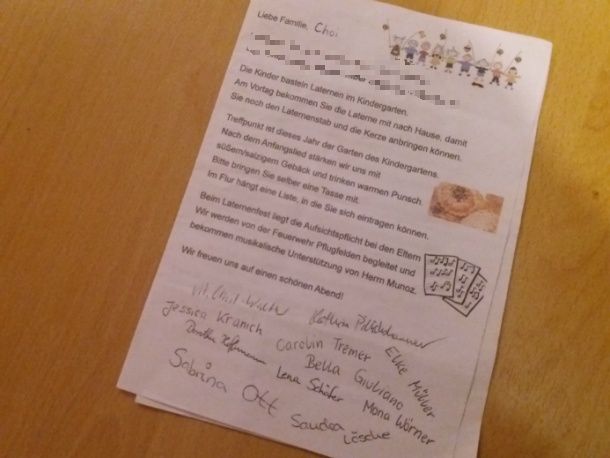 Liebe Familie, Choi
Die Kinder basteln Laternen im Kindergarten.
Am Vortag bekommen Sie die Laterne mit nach Hause, damit
Sie noch den Laternenstab und die Kerze anbringen können.
Treffpunkt ist dieses Jahr der Garten des Kindergartens.
Nach dem Anfangslied stärken wir uns mit
süßem/salzigem Gebäck und trinken warmen Punsch.
Bitte bringen Sie selber eine Tasse mit.
Im Flur hängt eine Liste, in die Sie sich eintragen können.
Beim Laternenfest liegt die Aufsichtspflicht bei den Eltern
Wir werden von der Feuerwehr Pflugfelden begleitet und
bekommen musikalische Unterstützung von Herrn Munoz.
Wir freuen uns auf einen schönen Abend!
Kathrin
Jessica Kranich Carolin Tremer Elke Müller
Dorothea Bella Giuliano
Lena Schäfer Mona Wörner
Sabrina Ott Sandra Lösche